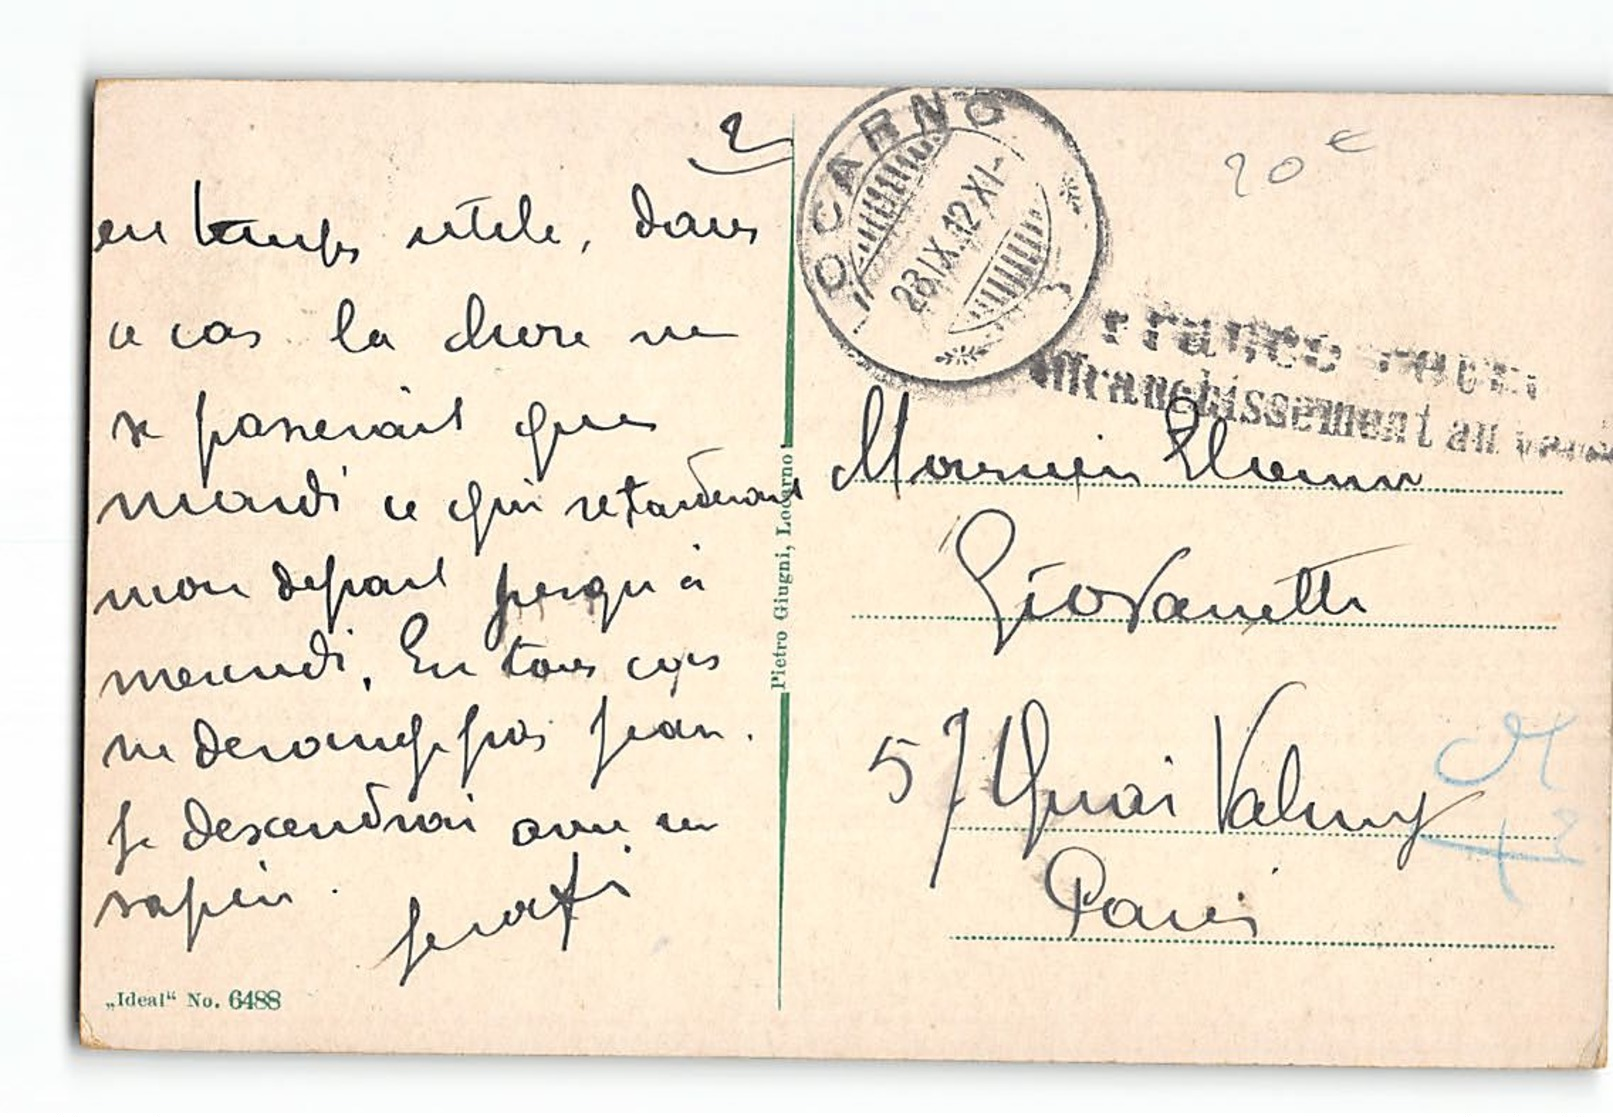 2
en temps utile, dans
ce cas la chose ne
se passerait que
mardi ce qui retarderait
mon depart jusqu'à
mercredi. En tous cas
ne derange pas Jean.
Je descendrai avec un
sapin.
„Ideal“ No. 6488
Pietro Giugni, Locarno
LOCARNO
28.IX.12 XI-
20 €
affranchissement au verso
Monsieur
Giovanetti
57 Quai Valmy
Paris